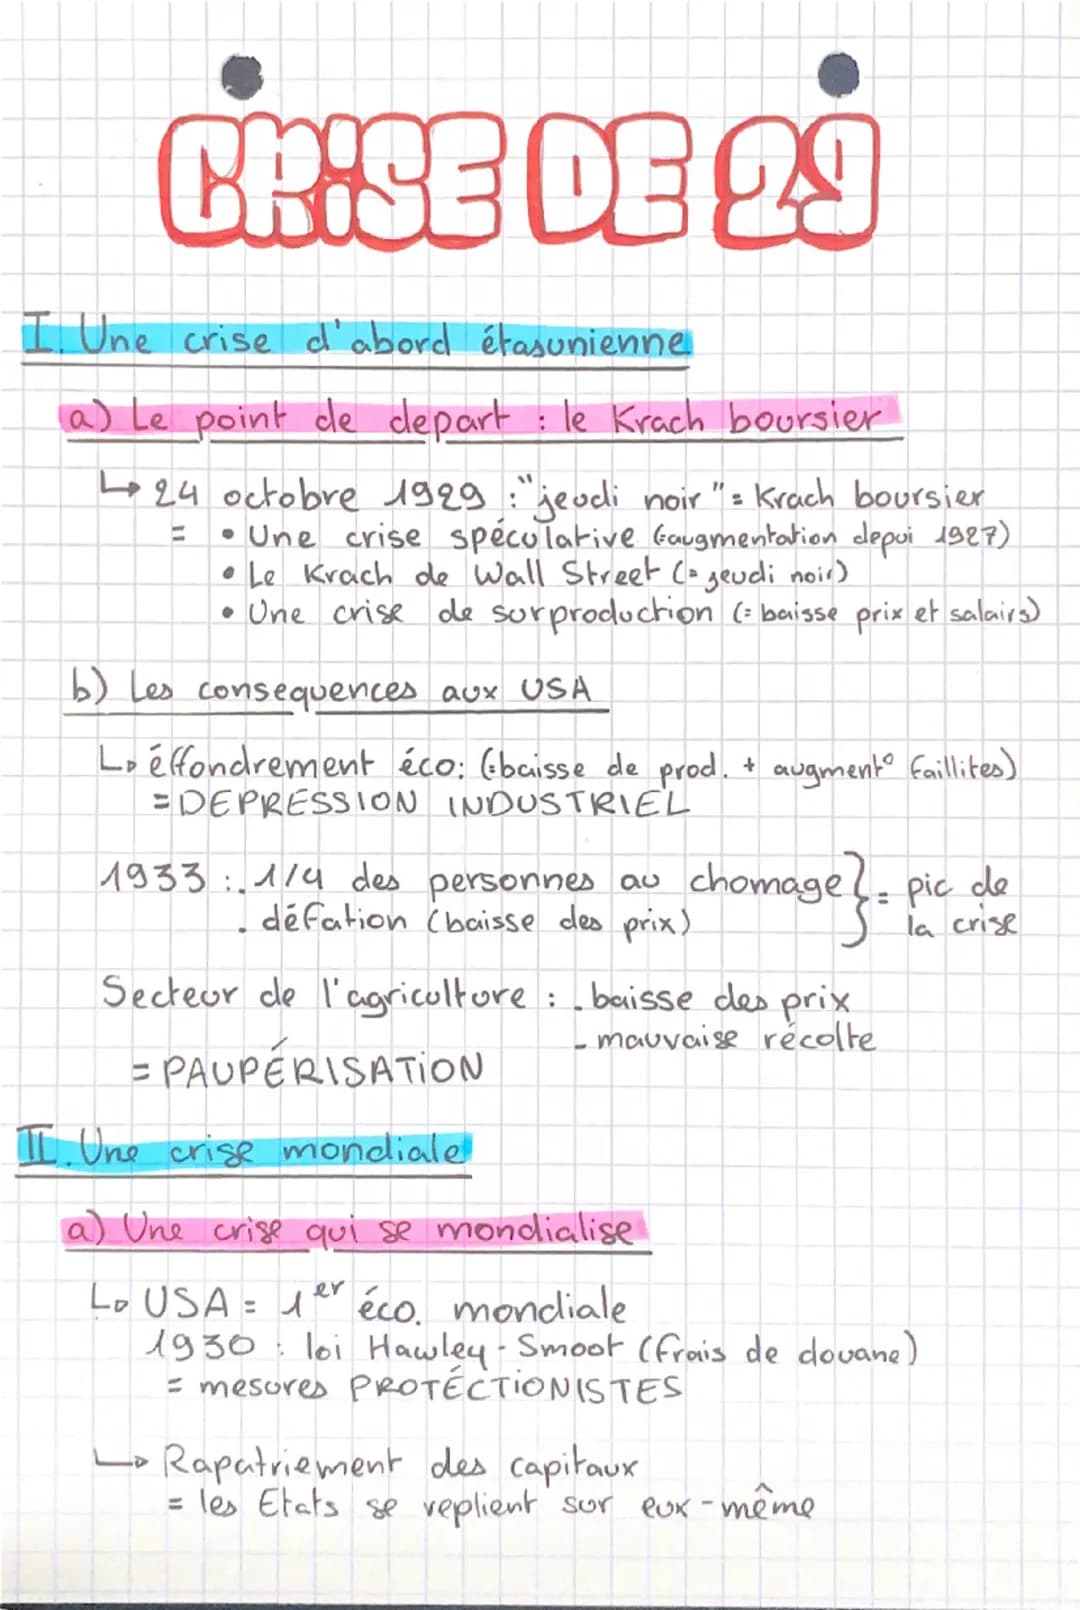 CRISE DE 29
I. Une crise d'abord étasunienne
a) Le point de depart : le Krach boursier
↳ 24 octobre 1929 : "jeudi noir" = Krach boursier
= • Une crise spéculative (augmentation depui 1927)
• Le Krach de Wall Street (= jeudi noir)
• Une crise de surproduction (= baisse prix et salairs)
b) Les consequences aux USA
↳ éffondrement éco: (=baisse de prod. + augment° faillites)
= DEPRESSION INDUSTRIEL
1933 : . 1/4 des personnes au chomage } = pic de
. défation (baisse des prix) la crise
Secteur de l'agriculture : . baisse des prix
- mauvaise récolte
= PAUPÉRISATION
II. Une crise mondiale
a) Une crise qui se mondialise
↳ USA = 1er éco. mondiale
1930 : loi Hawley - Smoot (frais de douane)
= mesures PROTÉCTIONISTES
↳ Rapatriement des capitaux
= les Etats se replient sur eux-même